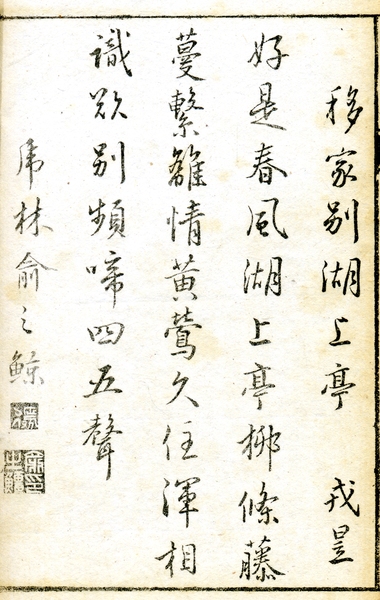 移家別湖上亭　戎昱
好是春風湖上亭柳條藤
蔓繫離情黃鶯久住渾相
識欲別頻啼四五聲
虎林俞之鯨